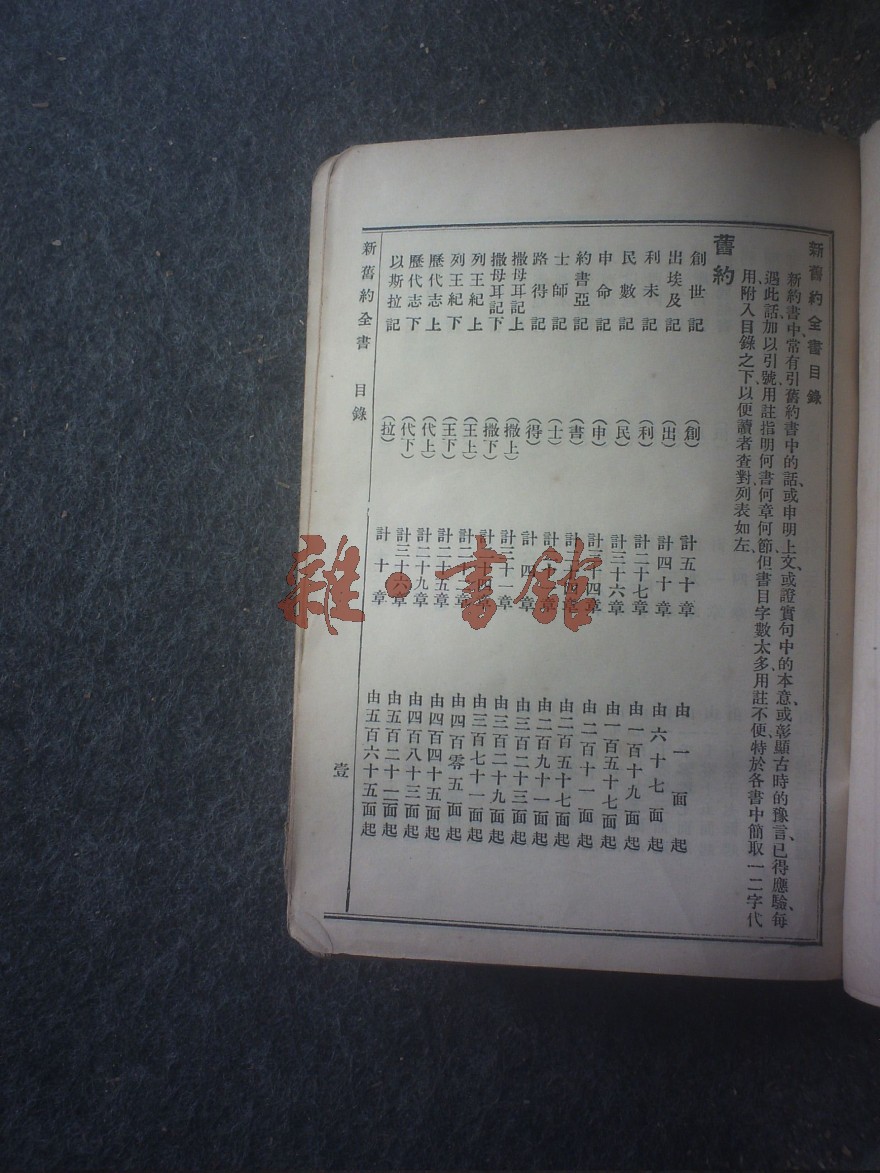 新舊約全書目錄
新約書中、常有引舊約書中的話、或申明上文、或證實句中的本意、或彰顯古時的豫言、已得應驗、每
遇此話、加以引號、用註指明何書何章何節、但書目字數太多、用註不便、特於各書中簡取一二字代
用、附入目錄之下、以便讀者查對、列表如左、
舊約
創世記 (創) 計五十章 由一面起
出埃及記 (出) 計四十章 由六十七面起
利未記 (利) 計二十七章 由一百十九面起
民數記 (民) 計三十六章 由一百五十七面起
申命記 (申) 計三十四章 由二百十一面起
約書亞記 (書) 計二十四章 由二百五十七面起
士師記 (士) 計二十一章 由二百九十一面起
路得記 (得) 計四章 由三百二十三面起
撒母耳記上 (撒上) 計三十一章 由三百二十九面起
撒母耳記下 (撒下) 計二十四章 由三百七十一面起
列王紀上 (王上) 計二十二章 由四百零五面起
列王紀下 (王下) 計二十五章 由四百四十五面起
歷代志上 (代上) 計二十九章 由四百八十三面起
歷代志下 (代下) 計三十六章 由五百二十一面起
以斯拉記 (拉) 計十章 由五百六十五面起
新舊約全書 目錄 壹
雜·書館